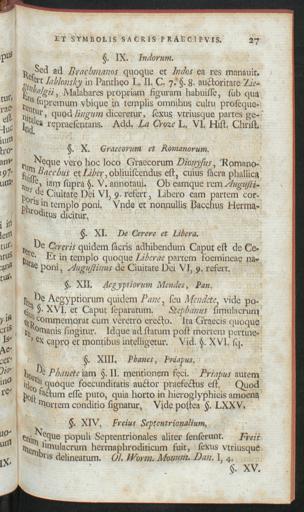 ET SYMBOLIS SACRIS PRAECIPVIS. 27
§. IX. Indorum.
Sed ad Brachmanos quoque et Indos ea res manauit.
Refert Jablonsky in Pantheo L. II. C. 7. §. 8. auctoritate Zie-
genbalgii, Malabares propriam figuram habuisse, sub qua
Ens supremum vbique in templis omnibus cultu proseque-
rentur, quod lingum diceretur, sexus vtriusque partes ge-
nitales repraesentans. Add. La Croze L. VI. Hist. Christ.
Ind.
§. X. Graecorum et Romanorum.
Neque vero hoc loco Graecorum Dionysus, Romano-
rum Bacchus et Liber, obliuiscendus est, cuius sacra phallica
fuisse, iam supra §. V. annotaui. Ob eamque rem Augusti-
nus de Ciuitate Dei VI, 9. refert, Libero eam partem cor-
poris in templo poni. Vnde et nonnullis Bacchus Herma-
phroditus dicitur.
§. XI. De Cerere et Libera.
De Cereris quidem sacris adhibendum Caput est de Ce-
rere. Et in templo quoque Liberae partem foemineae na-
turae poni, Augustinus de Ciuitate Dei VI, 9. refert.
§. XII. Aegyptiorum Mendes, Pan.
De Aegyptiorum quidem Pane, seu Mendete, vide po-
stea §. XVI. et Caput separatum. Stephanus simulacrum
eius commemorat cum veretro erecto. Ita Graecis quoque
et Romanis fingitur. Idque ad statum post mortem pertine-
re, ex capro et montibus intelligetur. Vid. §. XVI. sq.
§. XIII. Phanes, Priapus.
De Phanete iam §. II. mentionem feci. Priapus autem
hortis quoque foecunditatis auctor praefectus est. Quod
ideo factum esse puto, quia horto in hieroglyphis amoena
post mortem conditio signatur, Vide postea §. LXXV.
§. XIV. Freius Septentrionalium.
Neque populi Septentrionales aliter senserunt. Freii
enim simulacrum hermaphroditicum fuit, sexus vtriusque
membris delineatum. Ol. Worm. Monum. Dan. I, 4.
§. XV.